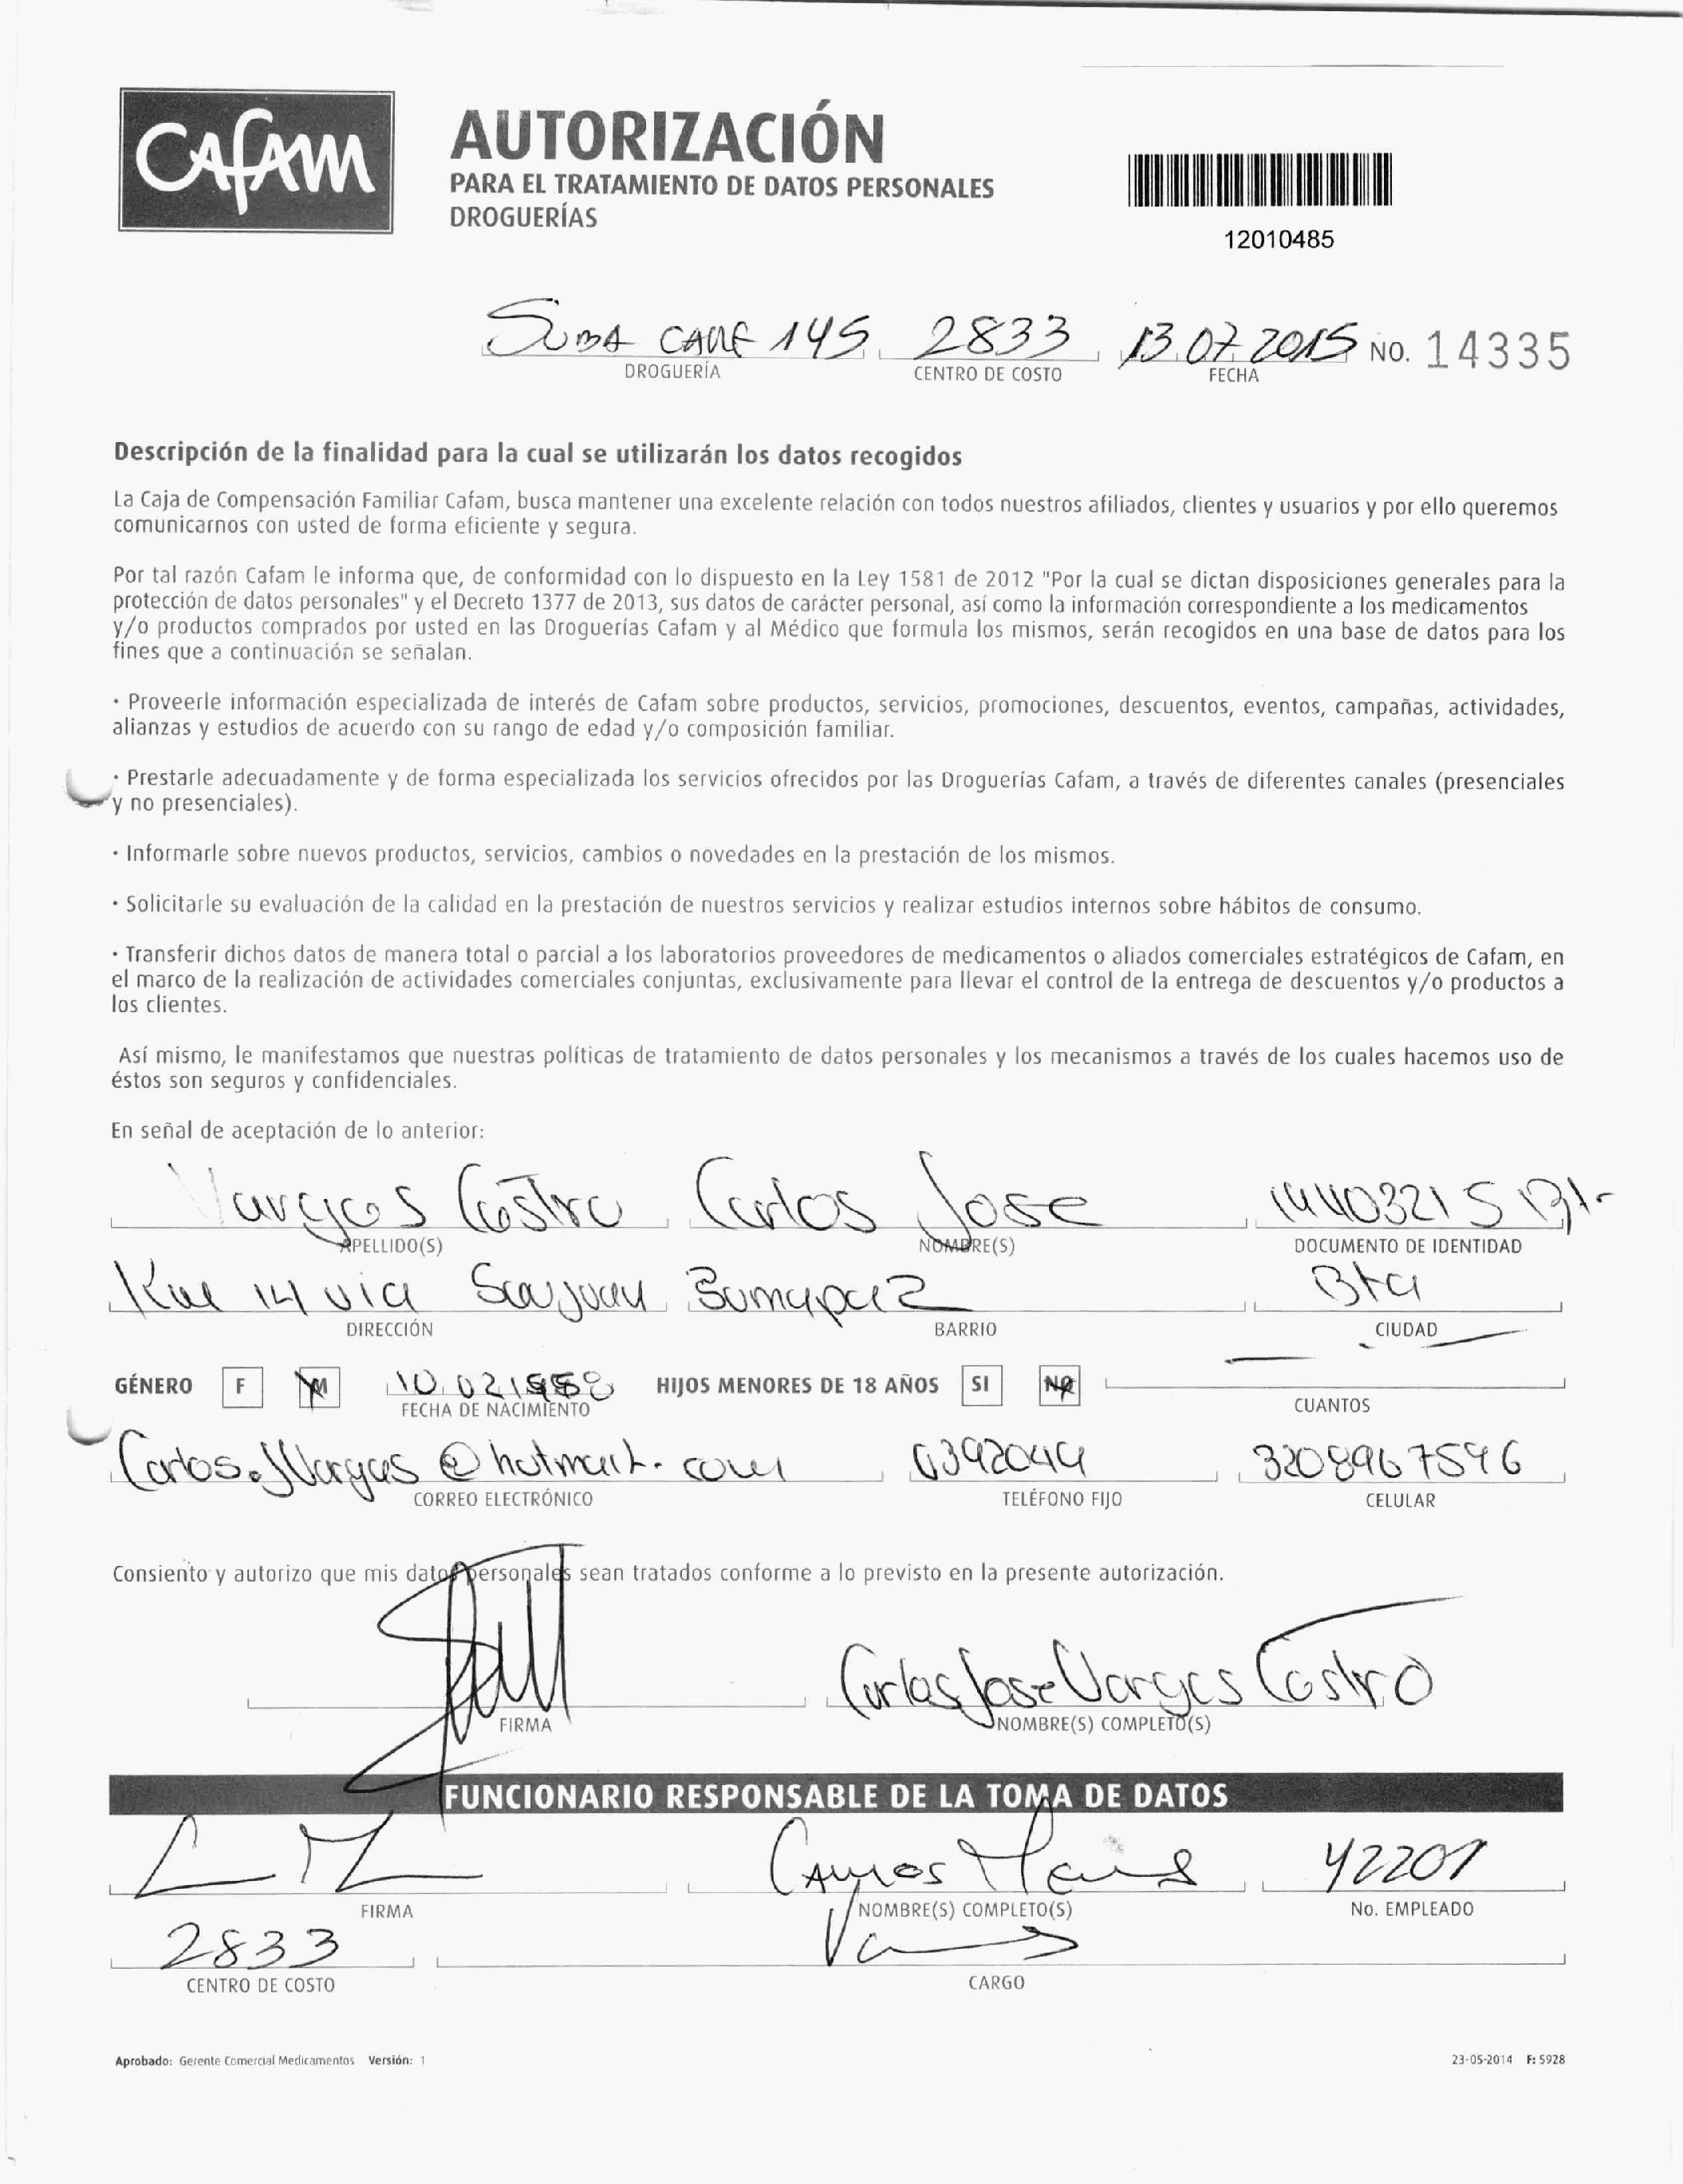 CAFAM
AUTORIZACIÓN
PARA EL TRATAMIENTO DE DATOS PERSONALES
DROGUERÍAS
12010485
SUBA CALLE 145 2833 13.07.2015 NO. 14335
DROGUERÍA CENTRO DE COSTO FECHA
Descripción de la finalidad para la cual se utilizarán los datos recogidos
La Caja de Compensación Familiar Cafam, busca mantener una excelente relación con todos nuestros afiliados, clientes y usuarios y por ello queremos
comunicarnos con usted de forma eficiente y segura.
Por tal razón Cafam le informa que, de conformidad con lo dispuesto en la Ley 1581 de 2012 "Por la cual se dictan disposiciones generales para la
protección de datos personales" y el Decreto 1377 de 2013, sus datos de carácter personal, así como la información correspondiente a los medicamentos
y/o productos comprados por usted en las Droguerías Cafam y al Médico que formula los mismos, serán recogidos en una base de datos para los
fines que a continuación se señalan.
· Proveerle información especializada de interés de Cafam sobre productos, servicios, promociones, descuentos, eventos, campañas, actividades,
alianzas y estudios de acuerdo con su rango de edad y/o composición familiar.
· Prestarle adecuadamente y de forma especializada los servicios ofrecidos por las Droguerías Cafam, a través de diferentes canales (presenciales
y no presenciales).
· Informarle sobre nuevos productos, servicios, cambios o novedades en la prestación de los mismos.
· Solicitarle su evaluación de la calidad en la prestación de nuestros servicios y realizar estudios internos sobre hábitos de consumo.
· Transferir dichos datos de manera total o parcial a los laboratorios proveedores de medicamentos o aliados comerciales estratégicos de Cafam, en
el marco de la realización de actividades comerciales conjuntas, exclusivamente para llevar el control de la entrega de descuentos y/o productos a
los clientes.
Así mismo, le manifestamos que nuestras políticas de tratamiento de datos personales y los mecanismos a través de los cuales hacemos uso de
éstos son seguros y confidenciales.
En señal de aceptación de lo anterior:
Vargas Castro Carlos Jose
APELLIDO(S) NOMBRE(S) DOCUMENTO DE IDENTIDAD
14 via Bta
DIRECCIÓN BARRIO CIUDAD
GÉNERO F M HIJOS MENORES DE 18 AÑOS SI NO
FECHA DE NACIMIENTO CUANTOS
Carlos.JVargas@hotmail.com 6392044 3208967596
CORREO ELECTRÓNICO TELÉFONO FIJO CELULAR
Consiento y autorizo que mis datos personales sean tratados conforme a lo previsto en la presente autorización.
Carlos Jose Vargas Castro
FIRMA NOMBRE(S) COMPLETO(S)
FUNCIONARIO RESPONSABLE DE LA TOMA DE DATOS
42201
FIRMA NOMBRE(S) COMPLETO(S) No. EMPLEADO
2833
CENTRO DE COSTO CARGO
Aprobado: Gerente Comercial Medicamentos Versión: 1 23-05-2014 F: 5928